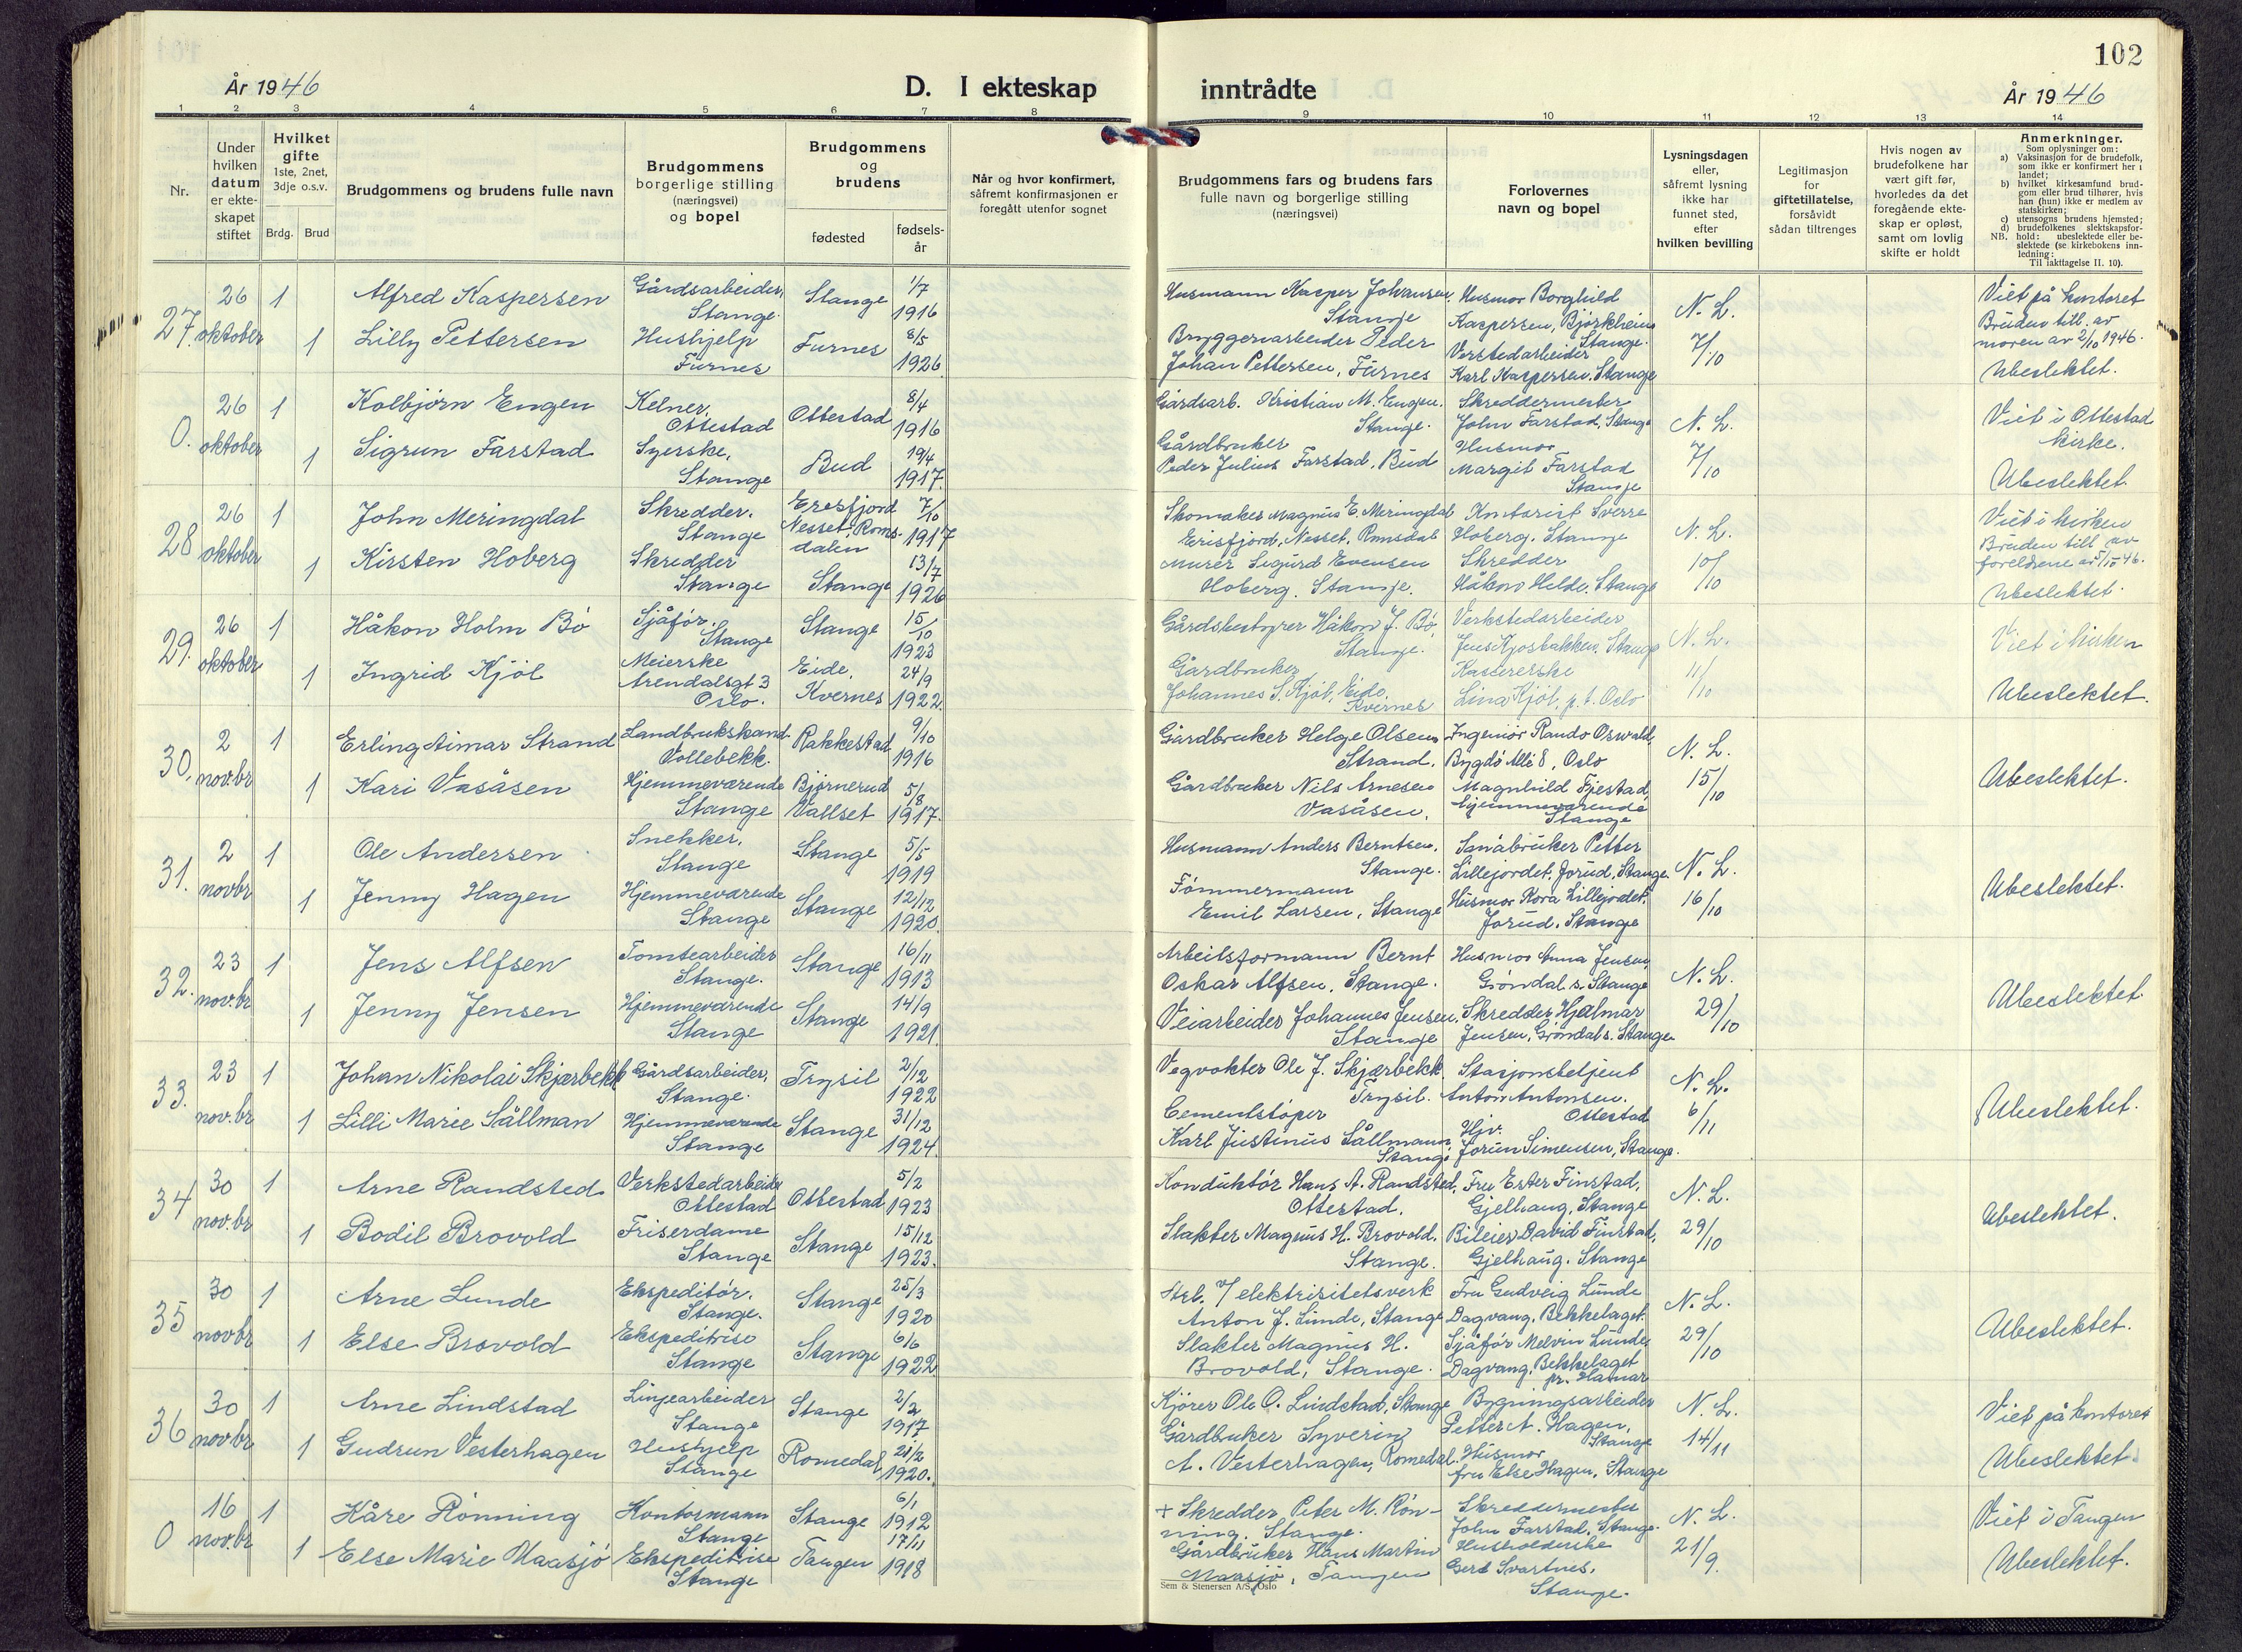 102
År 1946
D. I ekteskap
inntrådte
År 1946
1 2 3 4 5 6 7 8 9 10 11 12 13 14
Nr.
Under hvilken datum er ekte-skapet stiftet
Hvilket gifte 1ste, 2net, 3dje o.s.v.
Brdg. Brud
Brudgommens og brudens fulle navn
Brudgommens borgerlige stilling (næringsvei) og bopel
Brudgommens og brudens
fødested
fødsels-år
Når og hvor konfirmert, såfremt konfirmasjonen er foregått utenfor sognet
Brudgommens fars og brudens fars fulle navn og borgerlige stilling (næringsvei)
Forlovernes navn og bopel
Lysningsdagen eller, såfremt lysning ikke har funnet sted, efter hvilken bevilling
Legitimasjon for giftetillatelse, forsåvidt sådan tiltrenges
Hvis nogen av brudefolkene har vært gift før, hvorledes da det foregående ekte-skap er opløst, samt om lovlig skifte er holdt
Anmerkninger.
Som oplysninger om:
a) Vaksinasjon for de brudefolk, som ikke er konfirmert her i landet;
b) hvilket kirkesamfund brud-gom eller brud tilhører, hvis han (hun) ikke er medlem av statskirken;
c) utensogns brudens hjemsted;
d) brudefolkenes slektskapsfor-hold: ubeslektede eller be-slektede (se kirkebokens inn-ledning:
NB.
Til iakttagelse II. 10).
27. 26 oktober 1 Alfred Kaspersen Gårdsarbeider, Stange. Stange 1/7 1916 Husmann Kasper Johansen, Stange Husmor Borghild Kaspersen, Bjørkheim Stange. N. L. 7/10 Viet på kontoret
1 Lilly Pettersen Hushjelp Furnes Furnes 8/5 1926 Bryggeriarbeider Peder Johan Pettersen, Furnes Verstedarbeider Karl Kaspersen, Stange Bruden till. av moren av 2/10 1946. Ubeslektet.
0. 26 oktober 1 Kolbjørn Engen Kelner, Ottestad Ottestad 8/4 1916 Gårdsarb. Kristian M. Engen. Stange. Skreddermester John Farstad, Stange N. L. 7/10 Viet i Ottestad kirke.
1 Sigrun Farstad Syerske, Stange Bud 19/4 1917. Gårdbruker Peder Julius Farstad, Bud Husmor Margit Farstad Stange Ubeslektet.
28 26 oktober 1 John Meringdal Skredder. Stange Eresfjord Nesset, Roms-dalen 7/10 1917 Skomaker Magnus E. Meringdal Erisfjord, Nesset, Romsdal Kontorist Sverre Hoberg. Stange N. L. 10/10 Viet i kirken
1 Kirsten Hoberg Skredder Stange Stange 13/7 1926 Murer Sigurd Evensen Hoberg. Stange. Skredder Håkon Helde, Stange Bruden till. av foreldrene Ubeslektet.
29. 26 oktober 1 Håkon Holm Bö Sjåför. Stange Stange 15/10 1923 Gårdsbestyrer Håkon J. Bö, Stange. Verkstedarbeider Stange N. L. 11/10 Viet i kirken
1 Ingrid Kjöl Meierske Arendalsgt 3 Oslo. Eide, Kvernes 24/9 1922. Gårdbruker Johannes S. Kjöl, Eide, Kvernes Kasererske Lina Kjöl, p.t. Oslo Ubeslektet.
30. 2 nov.br 1 Erling Aimar Strand Landbrukskand. Vollebekk. Rakkestad 9/10 1916 Gårdbruker Helge Olsen Strand. Ingeniör Rando Oswald, Bygdö Allé 8, Oslo N. L. 15/10 Ubeslektet.
1 Kari Vasåsen Hjemmeværende Stange Bjørnerud Vallset 5/8 1917. Gårdbruker Nils Arnesen Vasåsen. Magnhild Fjestad, hjemmeværende Stange
31. 2 novbr 1 Ole Andersen Snekker, Stange Stange 5/5 1919 Husmann Anders Berntsen. Stange. Småbruker Petter Lillejordet, Jorud, Stange. N. L. 16/10 Ubeslektet.
1 Jenny Hagen Hjemmeværende Stange Stange 12/12 1920. Tømmermann Emil Larsen, Stange Husmor Kora Lillejordet, Jorud. Stange
32. 23 nov.br 1 Jens Alfsen Tomtearbeider Stange. Stange 16/11 1913 Arbeitsformann Bernt Oskar Alfsen, Stange. Husmor Anna Jensen, Gröndal s. Stange N. L. 29/10 Ubeslektet.
1 Jenny Jensen Hjemmeværende Stange Stange 14/9 1921. Veiarbeider Johannes Jensen, Stange Skredder Hjalmar Jensen, Gröndal s. Stange
33. 23 nov.br 1 Johan Nikolai Skjærbekk Gårdsarbeider, Stange. Trysil 2/12 1922 Vegvokter Ole J. Skjærbekk Trysil. Stasjonsbetjent Anton Antonsen. Ottestad N. L. 6/11 Ubeslektet.
1 Lilli Marie Sållman Hjemmeværende Stange Stange 31/12 1924. Cementstöper Karl Justinus Sållmann Stange Hjv. Jorun Simensen, Stange.
34 30 nov.br 1 Arne Randsted Verkstedarbeider Ottestad Ottestad 5/2 1923 Konduktör Hans A. Randsted, Ottestad. Fru Ester Finstad, Gjelhaug, Stange N. L. 29/10 Ubeslektet.
1 Bodil Brovold Friserdame Stange Stange 15/12 1923. Slakter Magnus H. Brovold. Stange. Bileier David Finstad, Gjelhaug. Stange
35 30 novbr 1 Arne Lunde Ekspeditör. Stange. Stange 25/3 1920 elektrisitetsverk Anton J. Lunde, Stange Fru Gudveig Lunde Dagvang, Bekkelaget. N. L. 29/10 Ubeslektet.
1 Else Brovold Ekspeditrise Stange Stange 6/6 1922 Slakter Magnus H. Brovold, Stange. Sjåför Melvin Lunde, Dagvang, Bekkelaget pr. Hamar
36 30 novbr 1 Arne Lindstad Linjearbeider Stange Stange 2/2 1917 Kjörer Ole O. Lindstad, Stange Bygningsarbeider Petter A. Hagen, Stange N. L. 14/11 Viet på kontoret
1 Gudrun Vesterhagen Hushjelp Stange Romedal 21/2 1920. Gårdbuker Syverin A. Vesterhagen, Romedal. Husmor fru Else Hagen, Stange Ubeslektet.
0 16 nov.br 1 Kåre Rönning Kontormann Stange Stange 6/1 1912 + Skredder Peter M. Rön-ning. Stange. Skreddermester John Farstad, Stange. N. L. 21/9. Viet i Tangen
1 Else Marie Maasjö Ekspeditrise Stange Tangen 17/11 1918 Gårdbruker Hans Martin Maasjö, Tangen Husholderske Gerd Svartnes. Stange. Ubeslektet.
Sem & Stenersen A/S, Oslo